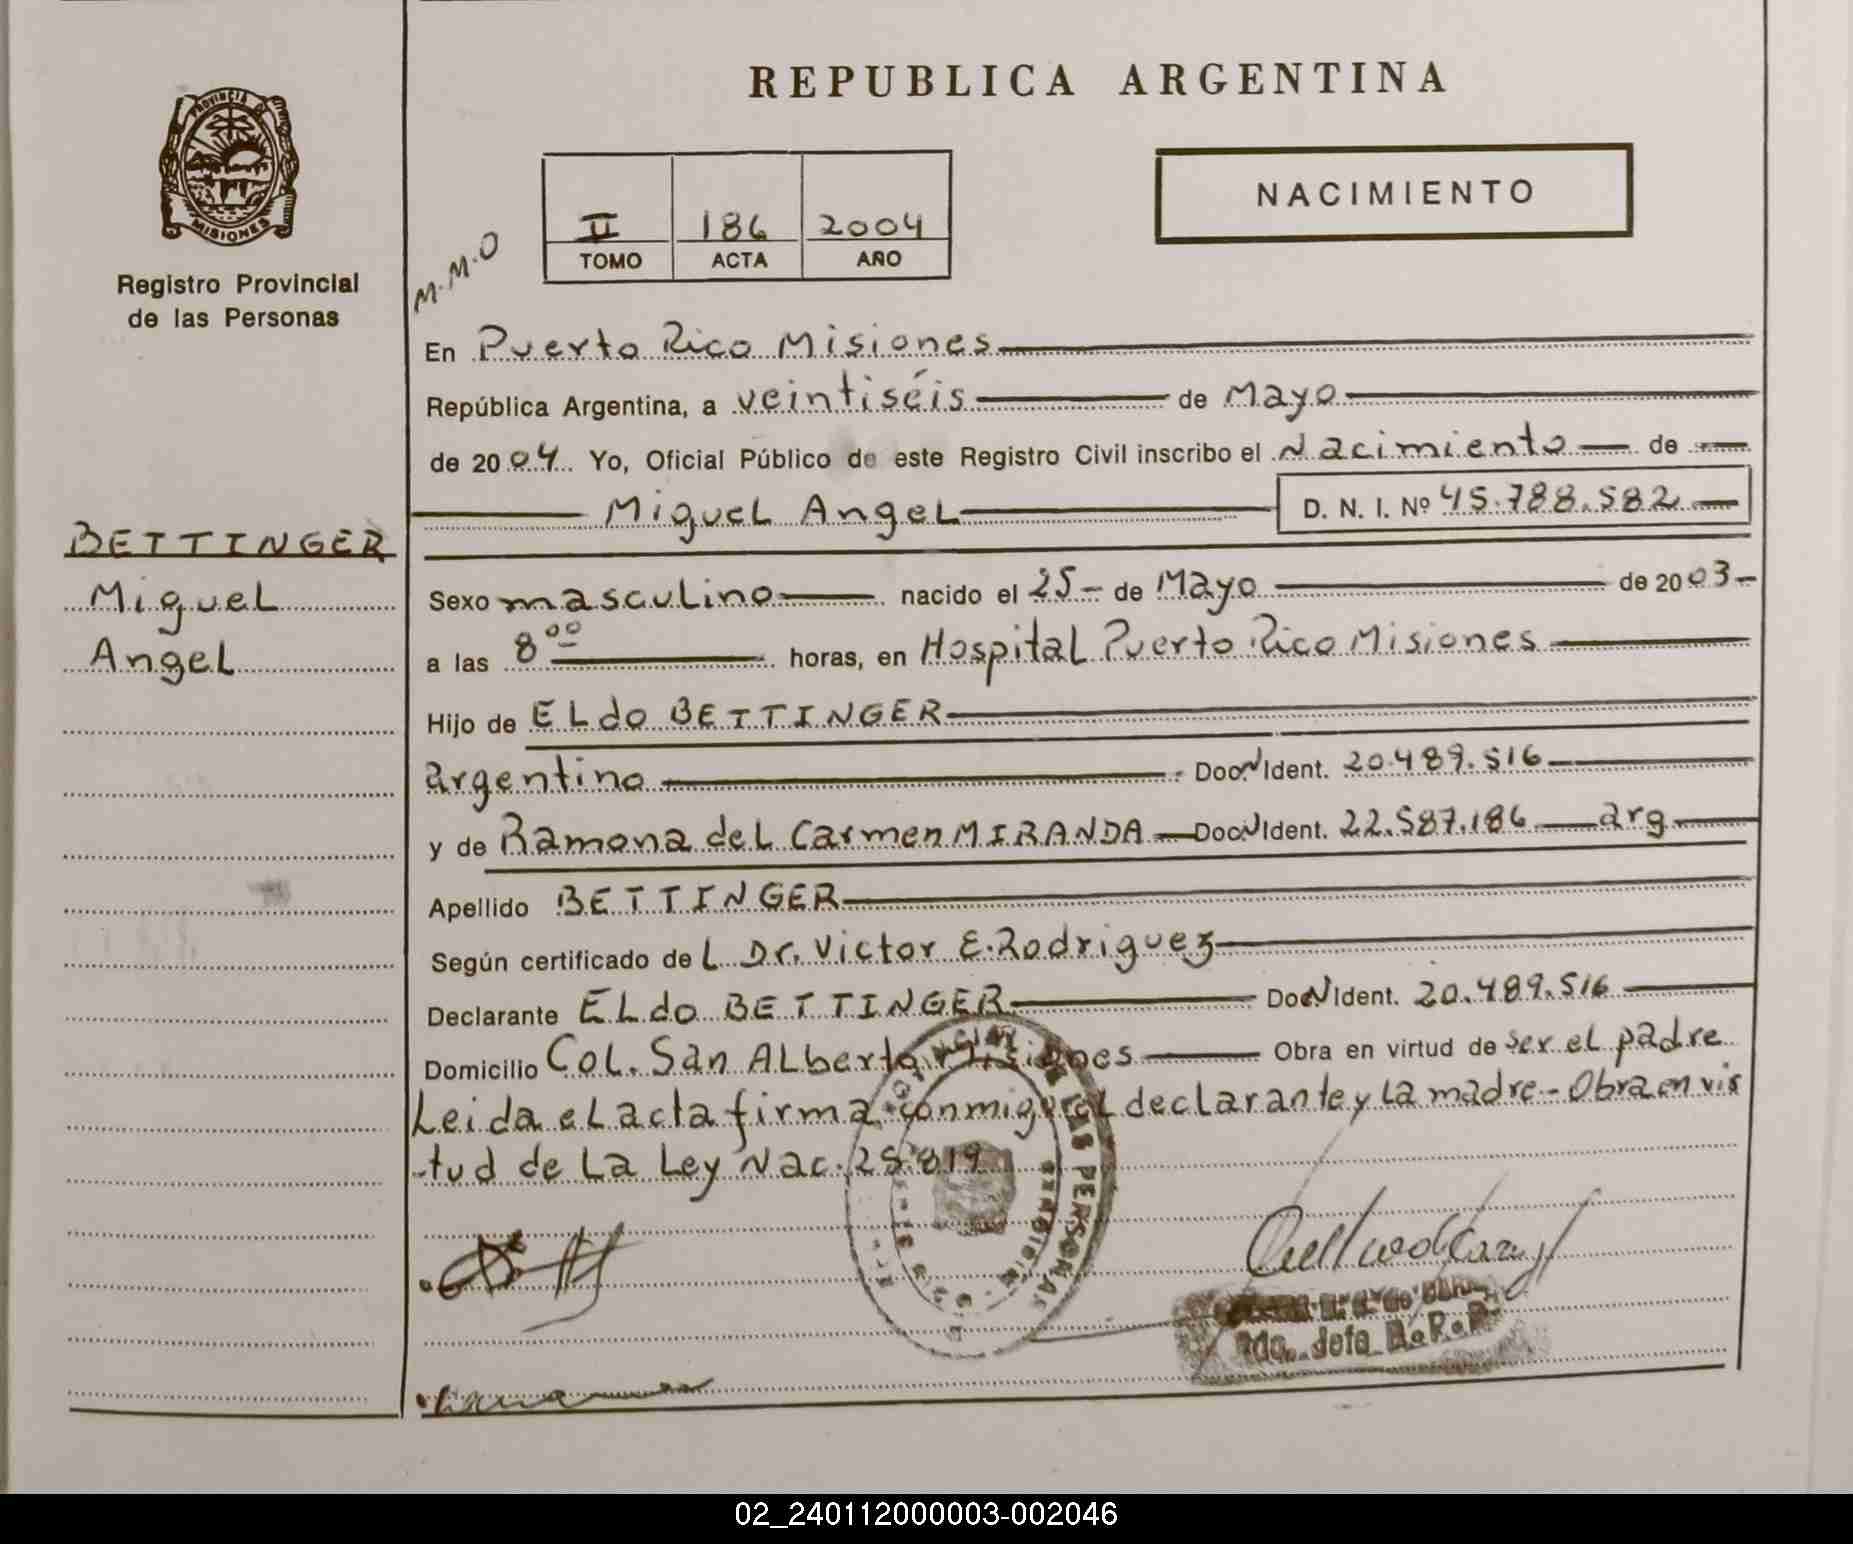 REPUBLICA ARGENTINA
PROVINCIA DE
MISIONES
Registro Provincial
de las Personas
NACIMIENTO
II 186 2004
TOMO ACTA AÑO
M.M.O
En Puerto Rico Misiones
República Argentina, a veintiséis de Mayo
de 2004 Yo, Oficial Público de este Registro Civil inscribo el Nacimiento de
Miguel Angel D. N. I. Nº 45.788.582
BETTINGER
Miguel
Angel
Sexo masculino nacido el 25 - de Mayo de 2003 -
a las 8 00 horas, en Hospital Puerto Rico Misiones
Hijo de ELdo BETTINGER
argentino Doc. N Ident. 20.489.516
y de Ramona del Carmen MIRANDA Doc N Ident. 22.587.186 arg
Apellido BETTINGER
Según certificado del Dr. Victor E. Rodriguez
Declarante ELdo BETTINGER Doc N Ident. 20.489.516
Domicilio Col. San Alberto Misiones Obra en virtud de ser el padre
Leida el acta firma conmigo el declarante y la madre - Obra en vir
-tud de La Ley Nac. 25.819
DE LAS PERSONAS
Jefa R.P.P.
02_240112000003-002046